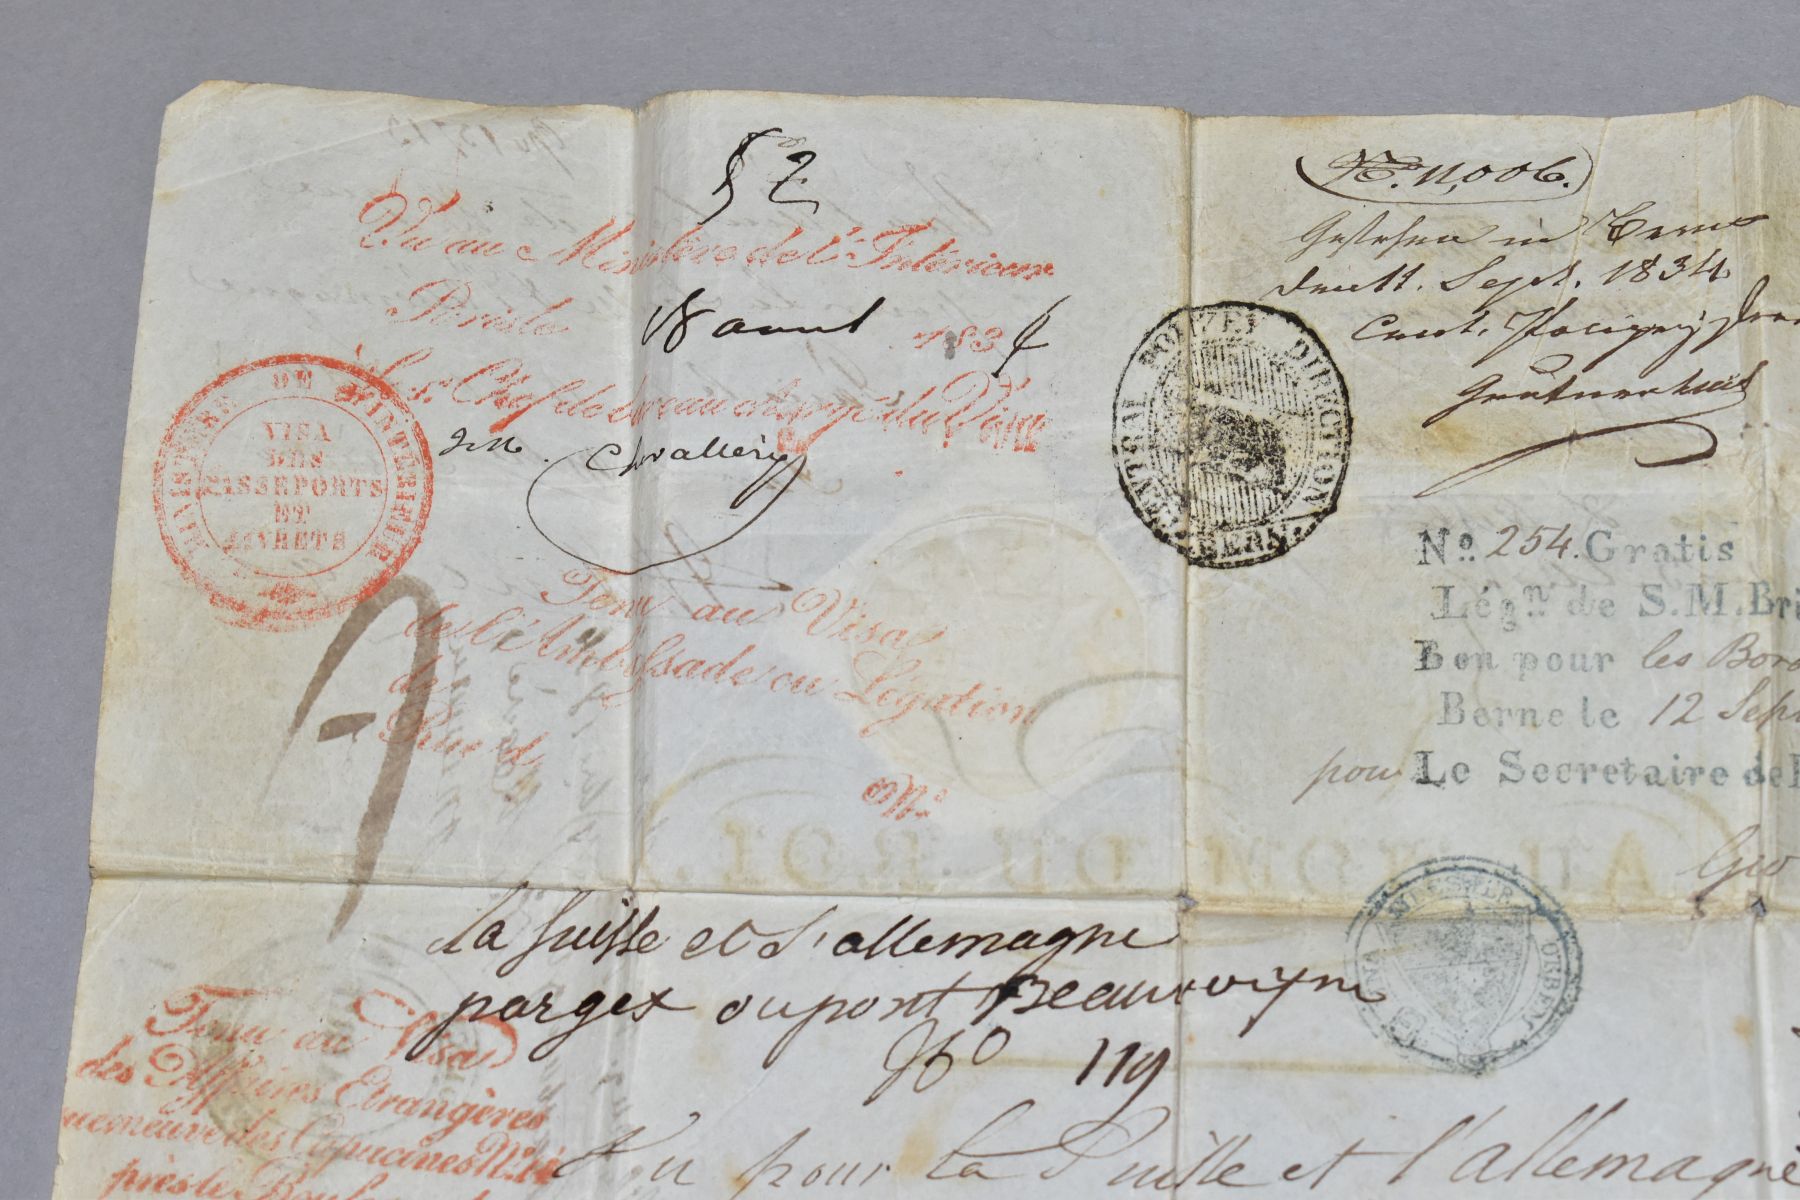 52
Vu au Ministère de l'Intérieur
Paris le 18 avril 1834
Le Sr Chef de bureau chargé du Visa
MINISTERE DE L'INTERIEUR
VISA
DES
PASSEPORTS
ET
LIVRETS
Tenu au Visa
de l'Ambassade ou Légation
de
Rue d
No.
No. 11,006.
Gesehen in Bern
den 11. Sept. 1834
CENTRAL POLIZEY DIRECTION
BERN
No. 254. Gratis
Légn. de S. M. Bri
Bon pour les Bord
Berne le 12 Sept
pour Le Secretaire de
Geo
AU NOM DU ROI
la Suisse et l'allemagne
par gex ou pont Beauvoisin
No 119
Tenu au Visa
des Affaires Etrangères
rue neuve des Capucines No. 14
près le Boul
Vu pour la Suisse et l'allemagne